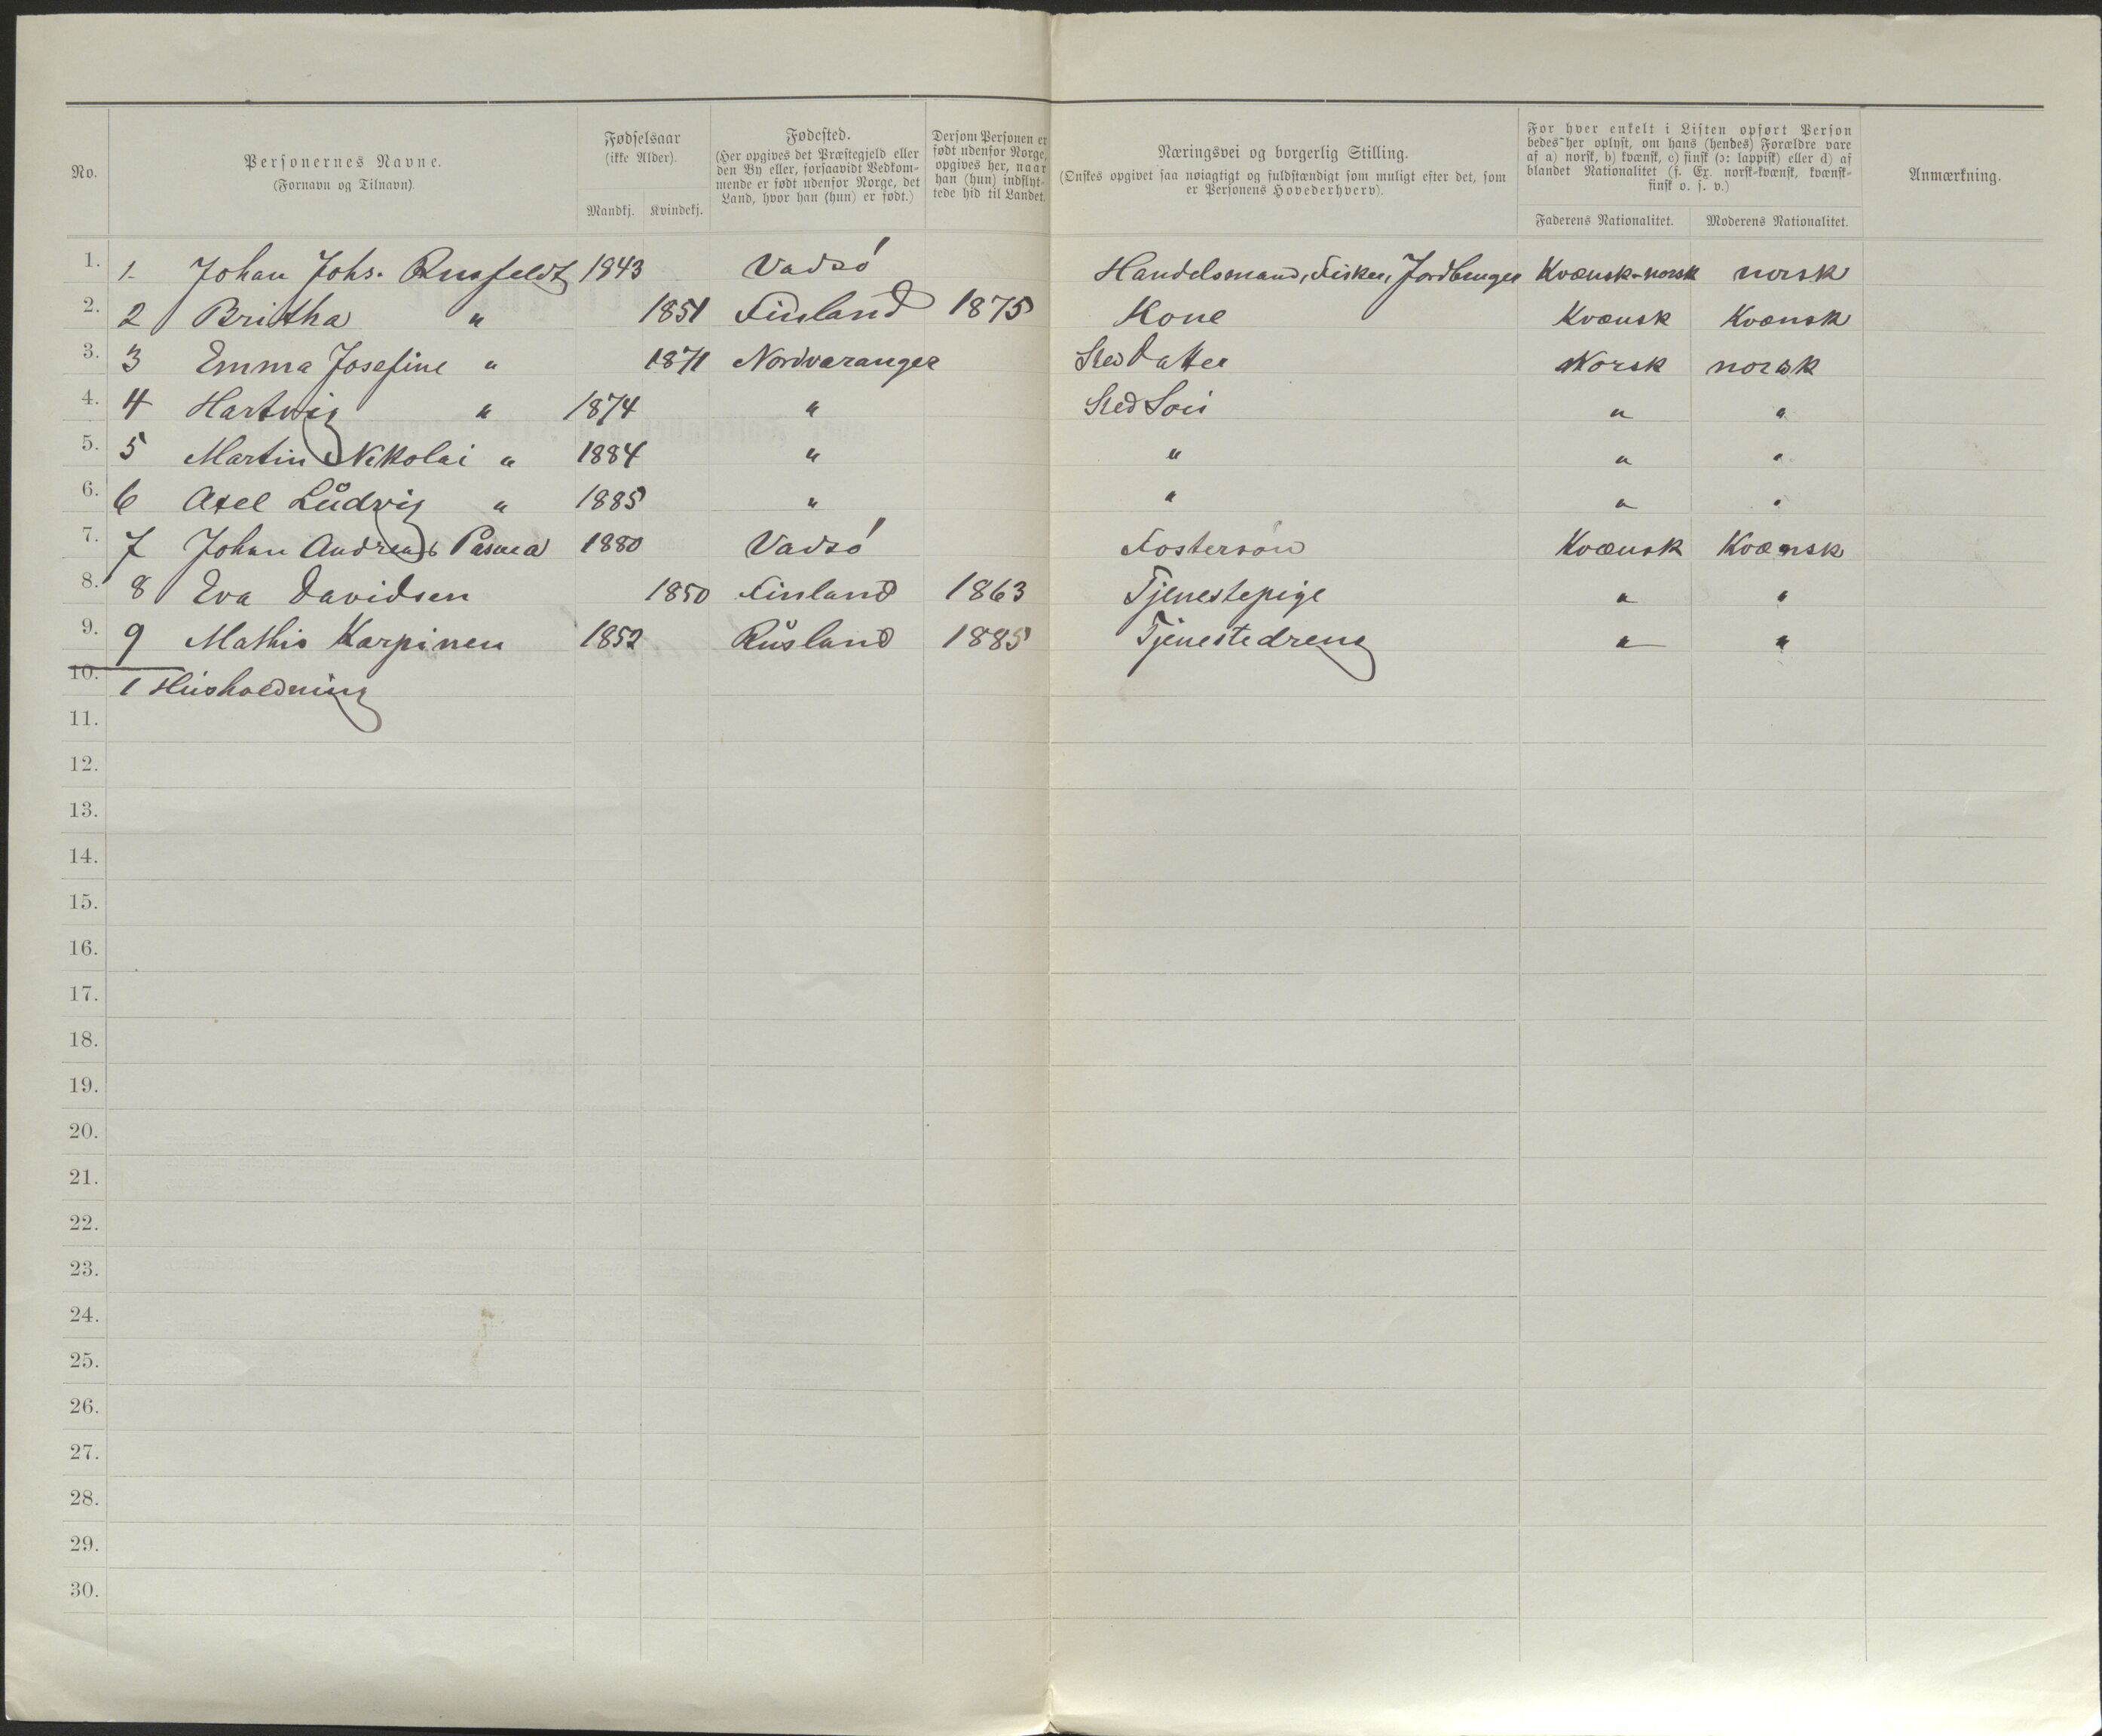 No.
Personernes Navne.
(Fornavn og Tilnavn).
Fødselsaar
(ikke Alder).
Mandkj. Kvindekj.
Fødested.
(Her opgives det Præstegjeld eller
den By eller, forsaavidt Vedkom-
mende er født udenfor Norge, det
Land, hvor han (hun) er født.)
Dersom Personen er
født udenfor Norge,
opgives her, naar
han (hun) indflyt-
tede hid til Landet.
Næringsvei og borgerlig Stilling.
(Ønskes opgivet saa nøiagtigt og fuldstændigt som muligt efter det, som
er Personens Hovederhverv).
For hver enkelt i Listen opført Person
bedes her oplyst, om hans (hendes) Forældre vare
af a) norsk, b) kvænsk, c) finsk (ɔ: lappisk) eller d) af
blandet Nationalitet (f. Ex. norsk-kvænsk, kvænsk-
finsk o. s. v.)
Faderens Nationalitet. Moderens Nationalitet.
Anmærkning.
1. 1. Johan Johs. Rusfeldt 1843 Vadsó Handelsmand, Fisker, Jordbruger Kvænsk-norsk norsk
2. 2 Britha " 1851 Finland 1875 Kone Kvænsk Kvænsk
3. 3 Emma Josefine " 1871 Nordvaranger Sted Datter Norsk norsk
4. 4 Hartvig " 1874 " Sted Søn " "
5. 5 Martin Nikolai " 1884 " " " "
6. 6 Axel Lůdvig " 1885 " " " "
7. 7 Johan Andreas 1880 Vadsó Fosterson Kvænsk Kvænsk
8. 8 Eva Davidsen 1850 Finland 1863 Tjenestepige " "
9. 9 Mathis Karpinen 1852 Růsland 1885 Tjenestedreng " "
10. 1 Husholdning
11.
12.
13.
14.
15.
16.
17.
18.
19.
20.
21.
22.
23.
24.
25.
26.
27.
28.
29.
30.